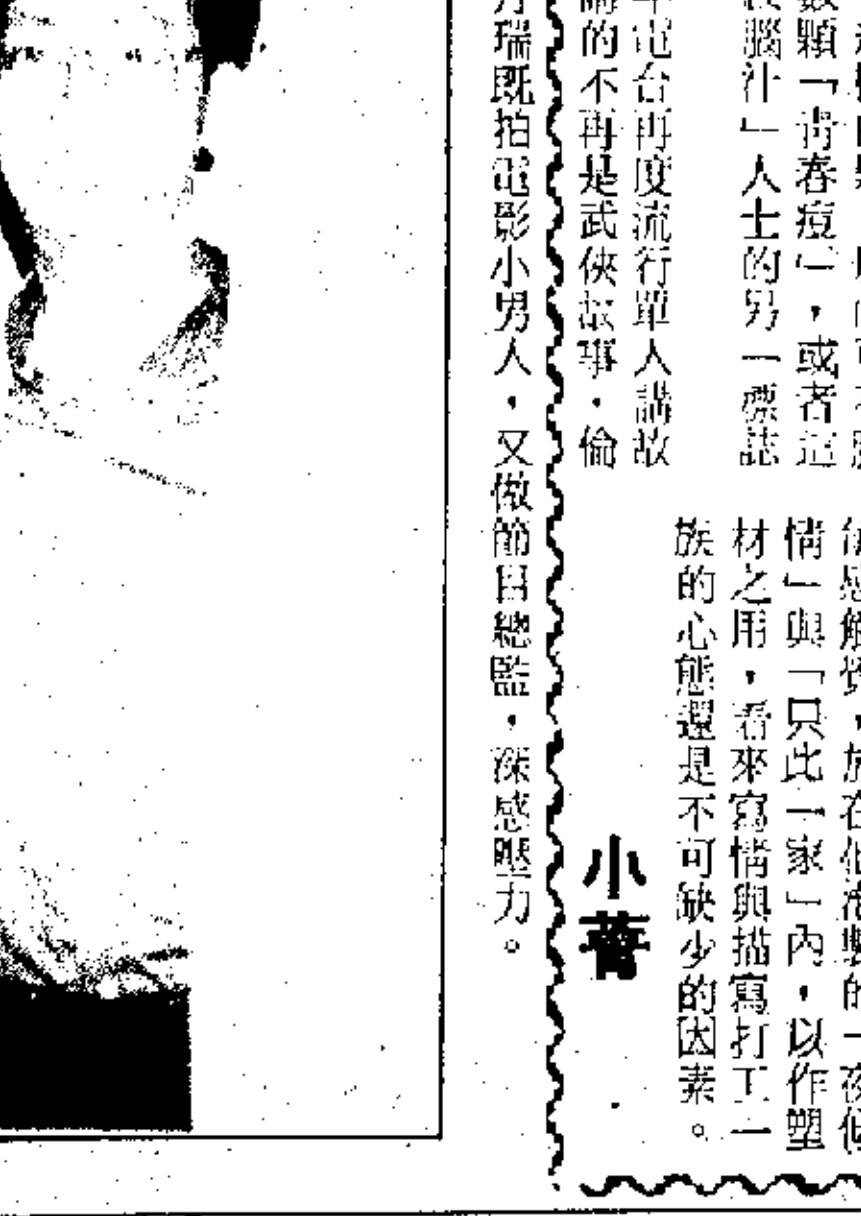 數顆「青春痘」，或者這
腦汁」人士的另一標誌
電台再度流行單人講故
的不再是武俠故事，倫
情」與「只此一家」內，以作塑
材之用，看來寫情與描寫打工一
族的心態還是不可缺少的因素。
小
瑞既拍電影小男人，又做節目總監，深感壓力。